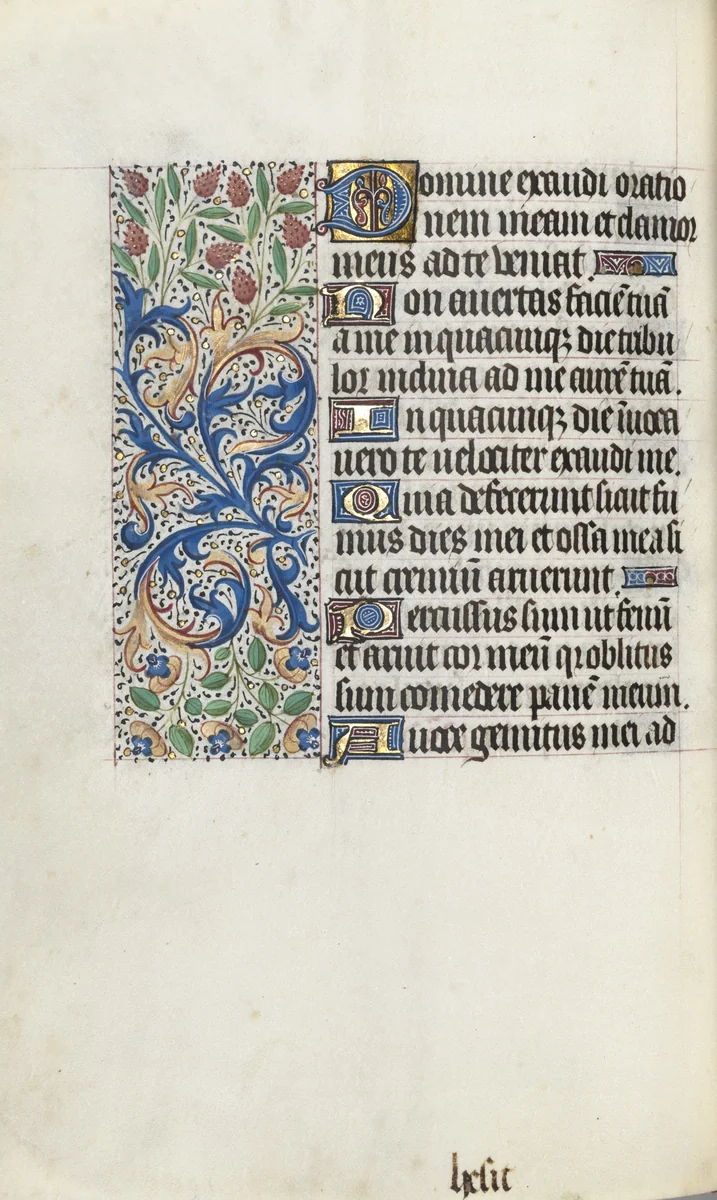 Domine exaudi oratio
nem meam et clamor
meus ad te veniat.
Non avertas faciē tuā
a me in quacumq; die tribu
lor inclina ad me aurē tuā.
In quacumq; die īuoca
uero te uelociter exaudi me.
Quia defecerunt sicut fu
mus dies mei et ossa mea si
cut cremiū aruerunt.
Percussus sum ut fenū
et aruit cor meū qr oblitus
sum comedere panē meum.
A uoce gemitus mei ad